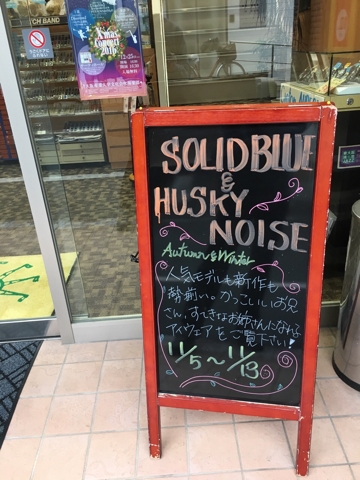 CH BAND
X'mas
Concert
2016
SOLID BLUE
&
HUSKY
NOISE
Autumn & Winter
人気モデルも新作も
勢揃い。かっこいいお兄
さん、すてきなお姉さんになれる
アイウェアをご覧下さい!
11/5〜11/13